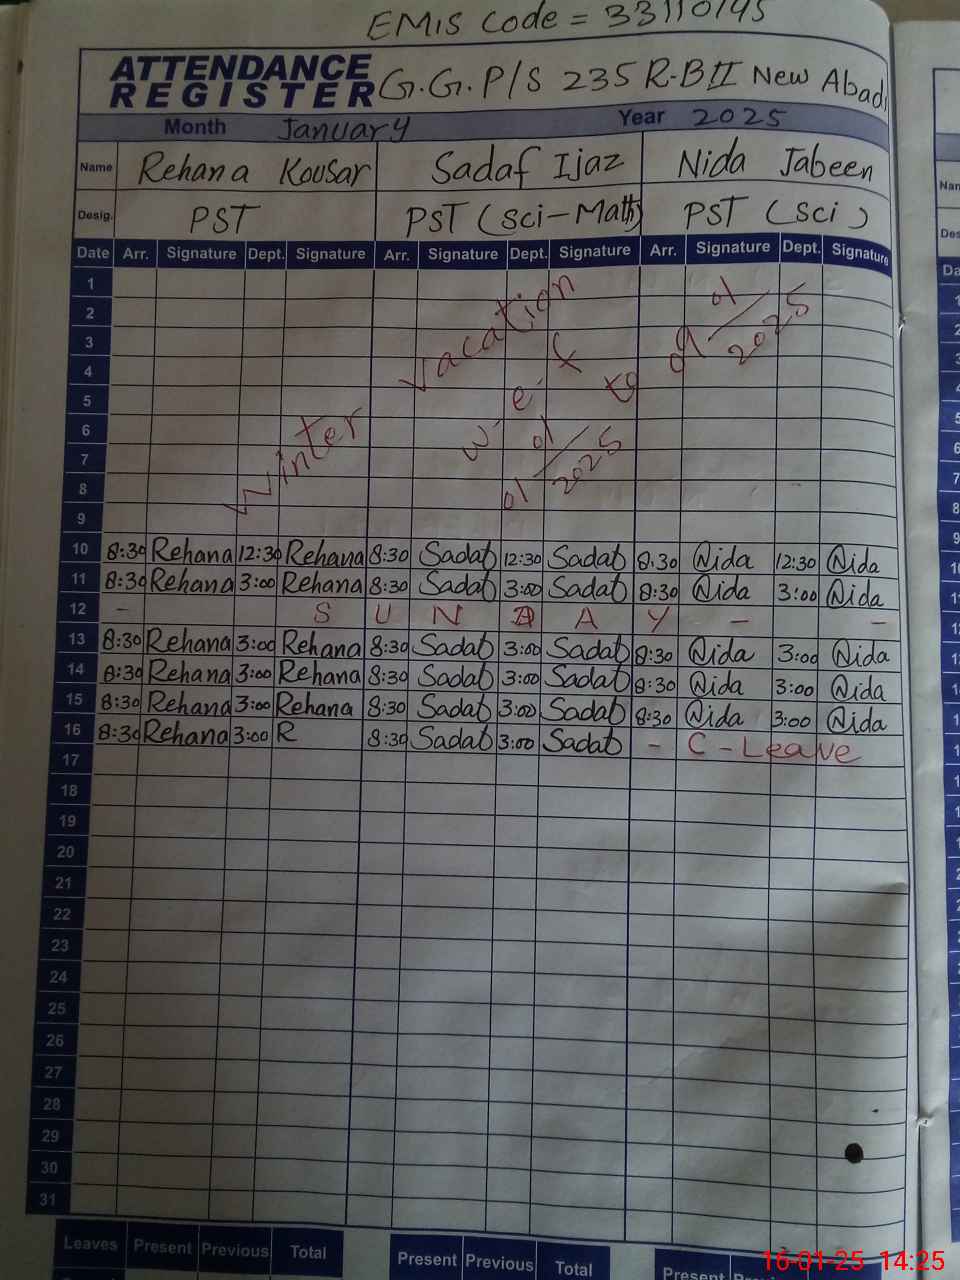 EMIS Code = 33110145
ATTENDANCE REGISTER G.G.P/S 235 R-B II New Abadi
Month January Year 2025
Name Rehana Kousar Sadaf Ijaz Nida Jabeen
Desig. PST PST (Sci-Math) PST (Sci)
Date Arr. Signature Dept. Signature Arr. Signature Dept. Signature Arr. Signature Dept. Signature
1
2
3
4
5
6
7
8
9
Winter Vacation w.e.f 01/01/2025 to 09/01/2025
10 8:30 Rehana 12:30 Rehana 8:30 Sadaf 12:30 Sadaf 8:30 Nida 12:30 Nida
11 8:30 Rehana 3:00 Rehana 8:30 Sadaf 3:00 Sadaf 8:30 Nida 3:00 Nida
12 - S U N D A Y - -
13 8:30 Rehana 3:00 Rehana 8:30 Sadaf 3:00 Sadaf 8:30 Nida 3:00 Nida
14 8:30 Rehana 3:00 Rehana 8:30 Sadaf 3:00 Sadaf 8:30 Nida 3:00 Nida
15 8:30 Rehana 3:00 Rehana 8:30 Sadaf 3:00 Sadaf 8:30 Nida 3:00 Nida
16 8:30 Rehana 3:00 R 8:30 Sadaf 3:00 Sadaf - C - Leave
17
18
19
20
21
22
23
24
25
26
27
28
29
30
31
Leaves Present Previous Total Present Previous Total Present
16-01-25 14:25